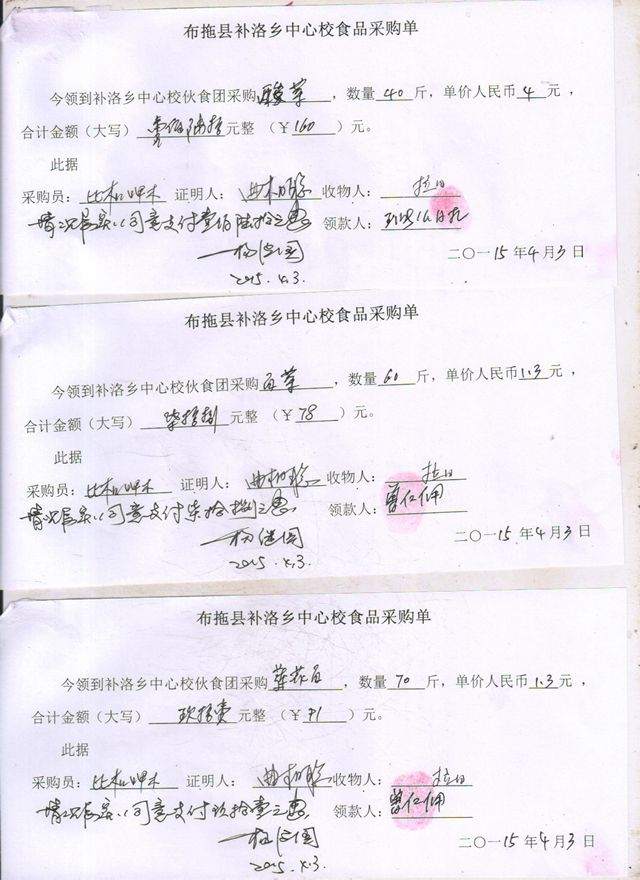 布拖县补洛乡中心校食品采购单
今领到补洛乡中心校伙食团采购酸菜，数量40斤，单价人民币4元，
合计金额（大写）壹佰陆拾元整（￥160）元。
此据
采购员： 证明人： 收物人：拉日
情况属实，同意支付壹佰陆拾元 领款人：
二〇一15年4月3日
2015.4.3.
布拖县补洛乡中心校食品采购单
今领到补洛乡中心校伙食团采购白菜，数量60斤，单价人民币1.3元，
合计金额（大写）柒拾捌元整（￥78）元。
此据
采购员： 证明人： 收物人：拉日
情况属实，同意支付柒拾捌元 领款人：
二〇一15年4月3日
2015.4.3.
布拖县补洛乡中心校食品采购单
今领到补洛乡中心校伙食团采购，数量70斤，单价人民币1.3元，
合计金额（大写）玖拾壹元整（￥91）元。
此据
采购员： 证明人： 收物人：拉日
情况属实，同意支付玖拾壹元 领款人：
二〇一15年4月3日
2015.4.3.